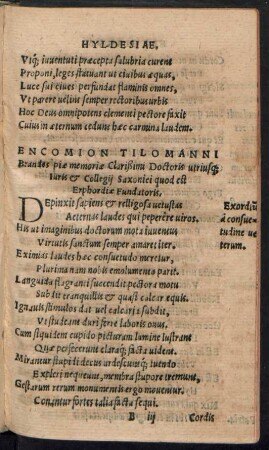 HYLDESIAE.
Vtq; iuuentuti præcepta salubria curent
Proponi, leges statuant ut ciuibus æquas,
Luce sui ciues perfundat flaminis omnes,
Vt parere uelint semper rectoribus urbis
Hoc Deus omnipotens clementi pectore faxit
Cuius in æternum cedunt hæc carmina laudem.
ENCOMION TILOMANNI
Brandes piæ memoriæ Clarissimi Doctoris utriusq;
Iuris & Collegij Saxonici quod est
Erphordiæ Fundatoris.
DEpinxit sapiens & religosa uetustas
Aeternas laudes qui peperêre uiros.
His ut imaginibus doctorum mota iuuentus
Virtutis sanctum semper amaret iter.
Eximias laudes hæc consuetudo meretur,
Plurima nam nobis emolumenta parit.
Languida flagranti succendit pectora motu
Subdit tranquillis & quasi calcar equis.
Ignauis stimulos dat uel calcaria subdit,
Vt studeant duri ferre laboris onus.
Cum siquidem cupido picturam lumine lustrant
Quæ persecerunt claraq; facta uident.
Mirantur stupidi decus ardescuntq; tuendo
Expleri nequeunt, membra stupore tremunt,
Gestarum rerum monumentis ergo mouentur.
Conantur fortes talia facta sequi.
Exordiũ
à consue-
tudine ue
terum.
B iij Cordis